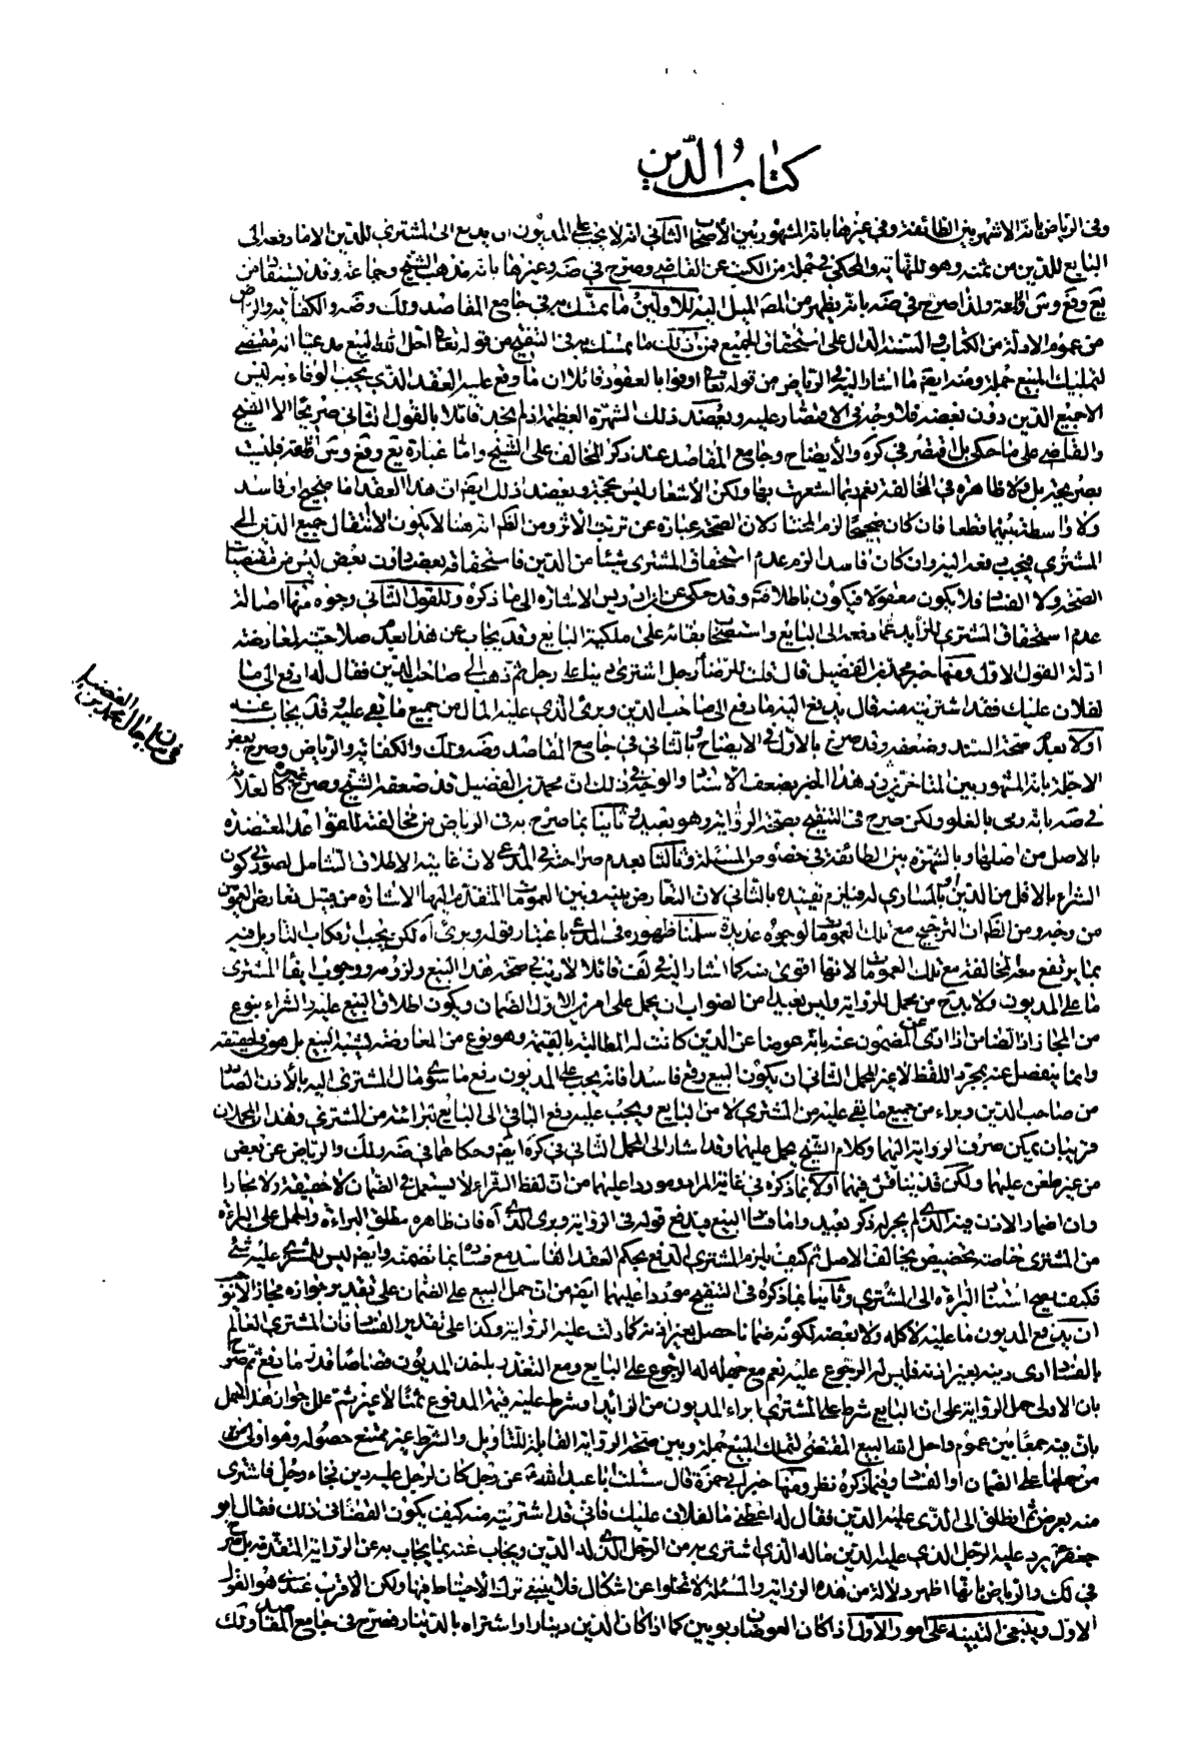 كتاب الدّين
وفى الرياض بانه الاشهر بين الطائفة وفى غيرها بانه المشهور بين الأصحاب الثانى انه لا يجب على المديون ان يدفع الى المشترى للدين الا ما دفعه الى
البايع للدين من ثمنه وهو للنهاية والمحكى فى جملة من الكتب عن القاضى وصرح فى ضه وغيرها بانه مذهب الشيخ وجماعة وقد يستفاد من
يع وفع وس واللمعة ولذا صرح فى ضه بانه يظهر من المص الميل اليه للاولين ما تمسك به فى جامع المقاصد ولك وضه والكفاية والرياض
من عموم الادلة من الكتاب والسنة الدال على استحقاق الجميع فمن ذلك ما تمسك به فى التنقيح من قوله تعالى احل الله البيع مدعيا انه مقتضى
لتمليك المبيع جملة ومنه ايضا ما اشار اليه فى الرياض من قوله تعالى اوفوا بالعقود قائلا ان ما وقع عليه العقد الذى يجب الوفاء به ليس
الا جميع الدين دون بعضه فلا وجه فى الاقتصار عليه ويعضد ذلك الشهرة العظيمة اذ لم نجد قائلا بالقول الثانى صريحا الا الشيخ
والقاضى على ما حكى بل اقتصر فى كره والايضاح وجامع المقاصد عند ذكر المخالف على الشيخ واما عبارة يع وفع وس واللمعة فليست
بصريحة بل ولا ظاهرة فى المخالفة نعم ربما اشعرت بها ولكن الأشعار ليس بحجة ويعضد ذلك ايضا ان هذا العقد اما صحيح او فاسد
ولا واسطة بينهما قطعا فان كان صحيحا لزم المختار لان الصحة عبارة عن ترتب الاثر ومن الظم انه هنا لا يكون الا انتقال جميع الدين الى
المشترى فيجب دفعه اليه وان كان فاسدا لزم عدم استحقاق المشترى شيئا من الدين فاستحقاقه بعضه دون بعض ليس من مقتضيات
الصحة ولا الفساد فلا يكون معقولا فيكون باطلا قطعا وقد حكى عن ابن ادريس الاشارة الى ما ذكره وللقول الثانى وجوه منها اصالة
عدم استحقاق المشترى للزايد عما دفعه الى البايع واستصحاب بقائه على ملكية البايع وقد يجاب عن هذا بعدم صلاحيته لمعارضة
ادلة القول الاول ومنها خبر محمد بن الفضيل قال قلت للرضا رجل اشترى دينا على رجل ثم ذهب الى صاحب الدين فقال له ادفع الى ما
لفلان عليك فقد اشتريته منه قال يدفع اليه ما دفع الى صاحب الدين وبرئ الذى عليه المال من جميع ما بقى عليه وقد يجاب عنه
اولا بعدم صحة السند وضعفه وقد صرح بالاول فى الايضاح وبالثانى فى جامع المقاصد وضه ولك والكفاية والرياض وصرح بعض
الاجلة بانه المشهور بين المتاخرين رد هذا الخبر بضعف الاسناد والوجه فى ذلك ان محمد بن الفضيل قد ضعفه الشيخ وصرح كالعلامة
فى صه بانه رمى بالغلو ولكن صرح فى التنقيح بصحة الرواية وهو بعيد وثانيا بما صرح به فى الرياض من مخالفته للقواعد المعتضدة
بالاصل من اصلها وبالشهرة بين الطائفة فى خصوص المسئلة وثالثا بعدم صراحته فى المدعى لان غايته الاطلاق الشامل لصورتى كون
الشراء بالاقل من الدين وبالمساوى له فيلزم تقييده بالثانى لان التعارض بينه وبين العمومات المتقدم اليها الاشارة من قبيل تعارض العمومين
من وجه ومن الظم ان الترجيح مع تلك العمومات لوجوه عديدة سلمنا ظهوره فى المدعى باعتبار قوله وبرئ آه لكن يجب ارتكاب التاويل فيه
بما يرتفع معه المخالفة مع تلك العمومات لانها اقوى منه كما اشار اليه فى لف قائلا لا ريب فى صحة هذا البيع ولزومه ووجوب ايفاء المشترى
ما على المديون ولا بد ح من محمل للرواية وليس بعيدا من الصواب ان يحمل على امرين الاول الضمان ويكون اطلاق البيع عليه والشراء بنوع
من المجاز اذ الضامن اذا ادى عن المضمون عنه بانه عوضا عن الدين كانت له المطالبة بالقيمة وهو نوع من المعاوضة يشبه البيع بل هو فى الحقيقة
وانما ينفصل عنه بمجرد اللفظ لا غير المحمل الثانى ان يكون البيع وقع فاسدا فانه يجب على المديون دفع ما يساوى مال المشترى اليه بالأذن الصادر
من صاحب الدين وبراء من جميع ما بقى عليه من المشترى لا من البايع ويجب عليه دفع الباقى الى البايع لبرائته من المشترى وهذان المحملان
قريبان يمكن صرف الرواية اليهما وكلام الشيخ يحمل عليهما وقد اشار الى المحمل الثانى فى كره ايضا وحكاهما فى ضه ولك والرياض عن بعض
من غير طعن عليهما ولكن قد يناقش فيهما اولا بما ذكره فى غاية المراد موردا عليهما من ان لفظ الشراء لا يستعمل فى الضمان لا حقيقة ولا مجازا
وان اضمار الاذن فيه الذى لم يجر له ذكر بعيد واما فساد البيع فيدفع قوله فى الرواية وبرئ الذى آه فان ظاهره مطلق البراءة والحمل على البراءة
من المشترى خاصة تخصيص مخالف الاصل ثم كيف يلزم المشترى الدفع بحكم العقد الفاسد مع فساد ما تضمنه وايضا ليس للمشترى عليه شئ
فكيف يصح اسناد البراءة الى المشترى وثانيا بما ذكره فى التنقيح موردا عليهما ايضا من ان حمل البيع على الضمان على تقدير جوازه مجازا
ان يدفع المديون ما عليه لا كله ولا بعضه لكونه ضمانا حصل بغير اذنه كما دلت عليه الرواية وكذا على تقدير الفساد فان المشترى العالم
بالفساد ادى دينه بغير اذنه فليس له الرجوع عليه نعم مع جهله له الرجوع على البايع ومع التعذر ياخذ المديون قصاصا قدر ما دفع ثم صرح
بان الاولى حمل الرواية على ان البايع شرط على المشترى ابراء المديون من الزائد او شرط عليه قيمة المدفوع ثمنا لا غير ثم علل جواز هذا الحمل
بان فيه جمعا بين عموم واحل الله البيع المقتضى لتملك المبيع جملة وبين صحة الرواية القابلة للتاويل والشرط غير ممتنع حصوله وهو اولى من
من حملها على الضمان او الفساد وفيما ذكره نظر ومنها خبر ابى حمزة قال سئلت ابا عبد الله عن رجل كان لرجل عليه دين فجاء رجل فاشترى
منه بعرض ثم انطلق الى الذى عليه الدين فقال له اعطنى ما لفلان عليك فانى قد اشتريته منه كيف يكون القضاء فى ذلك فقال ابو
جعفر يرد عليه الرجل الذى عليه الدين ماله الذى اشترى به من الرجل الذى له الدين ويجاب عنه بما يجاب به عن الرواية المتقدمة بل صرح
فى لك والرياض بانها اظهر دلالة من هذه الرواية والمسئلة لا تخلوا عن اشكال فلا ينبغى ترك الاحتياط فيها ولكن الاقرب عندى هو القول
الاول وينبغى التنبيه على امور الاول اذا كان العوضان ربويين كما اذا كان الدين دينارا واشتراه بالدينار فصرح فى جامع المقاصد ولك
فى بيان حال محمد بن الفضيل